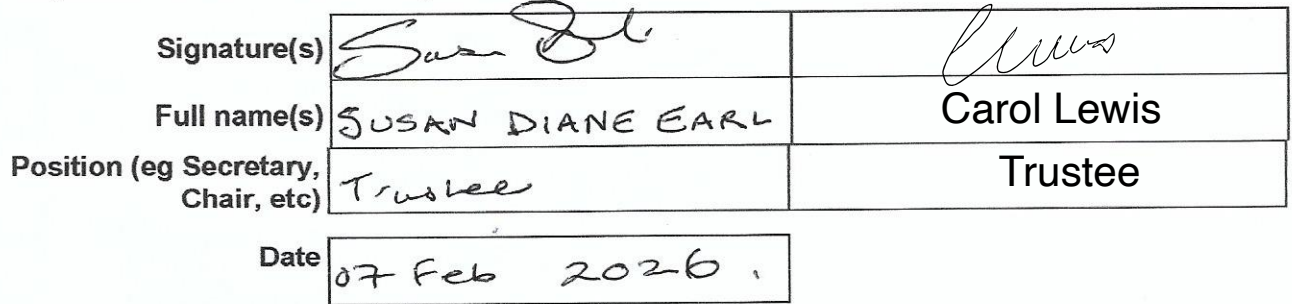 Signature(s) Susan
Full name(s) SUSAN DIANE EARL Carol Lewis
Position (eg Secretary,
Chair, etc) Trustee Trustee
Date 07 Feb 2026.